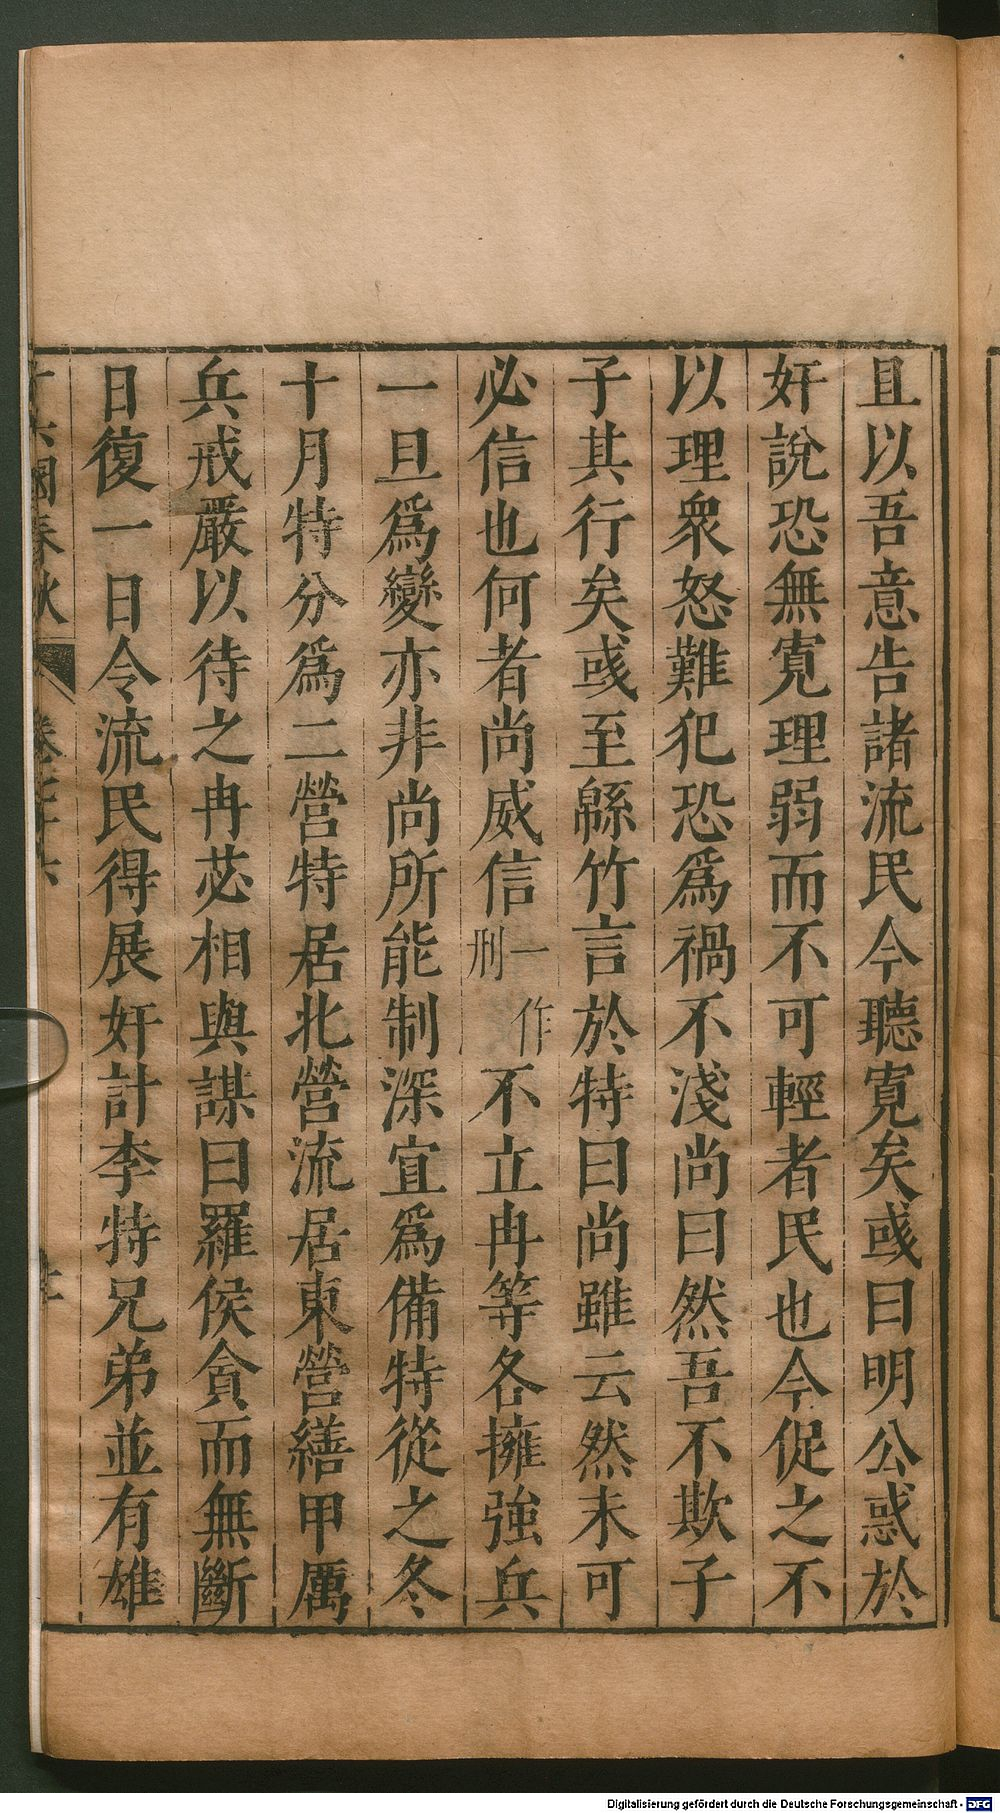 且以吾意告諸流民今聽寬矣或曰明公惑於
奸說恐無寬理弱而不可輕者民也今促之不
以理衆怒難犯恐爲禍不淺尚曰然吾不欺子
子其行矣或至緜竹言於特曰尚雖云然未可
必信也何者尚威信一作刑不立冉等各擁強兵
一旦爲變亦非尚所能制深宜爲備特從之冬
十月特分爲二營特居北營流居東營繕甲厲
兵戒嚴以待之冉苾相與謀曰羅侯貪而無斷
日復一日令流民得展奸計李特兄弟並有雄
國春秋
Digitalisierung gefördert durch die Deutsche Forschungsgemeinschaft - DFG